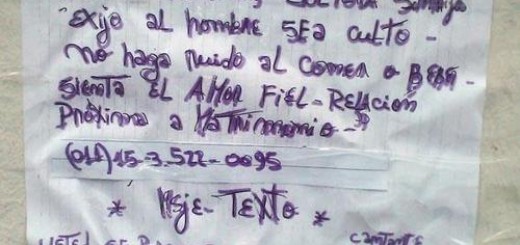 CULTURA
Exijo al hombre SEA culto -
no haga ruido al comer o BEBE -
SIENTA EL AMOR FIEL - RELACIÓN
PRóxima a Matrimonio -
(011) 15-3.522-0095
* Msje - TEXTO *
USTED